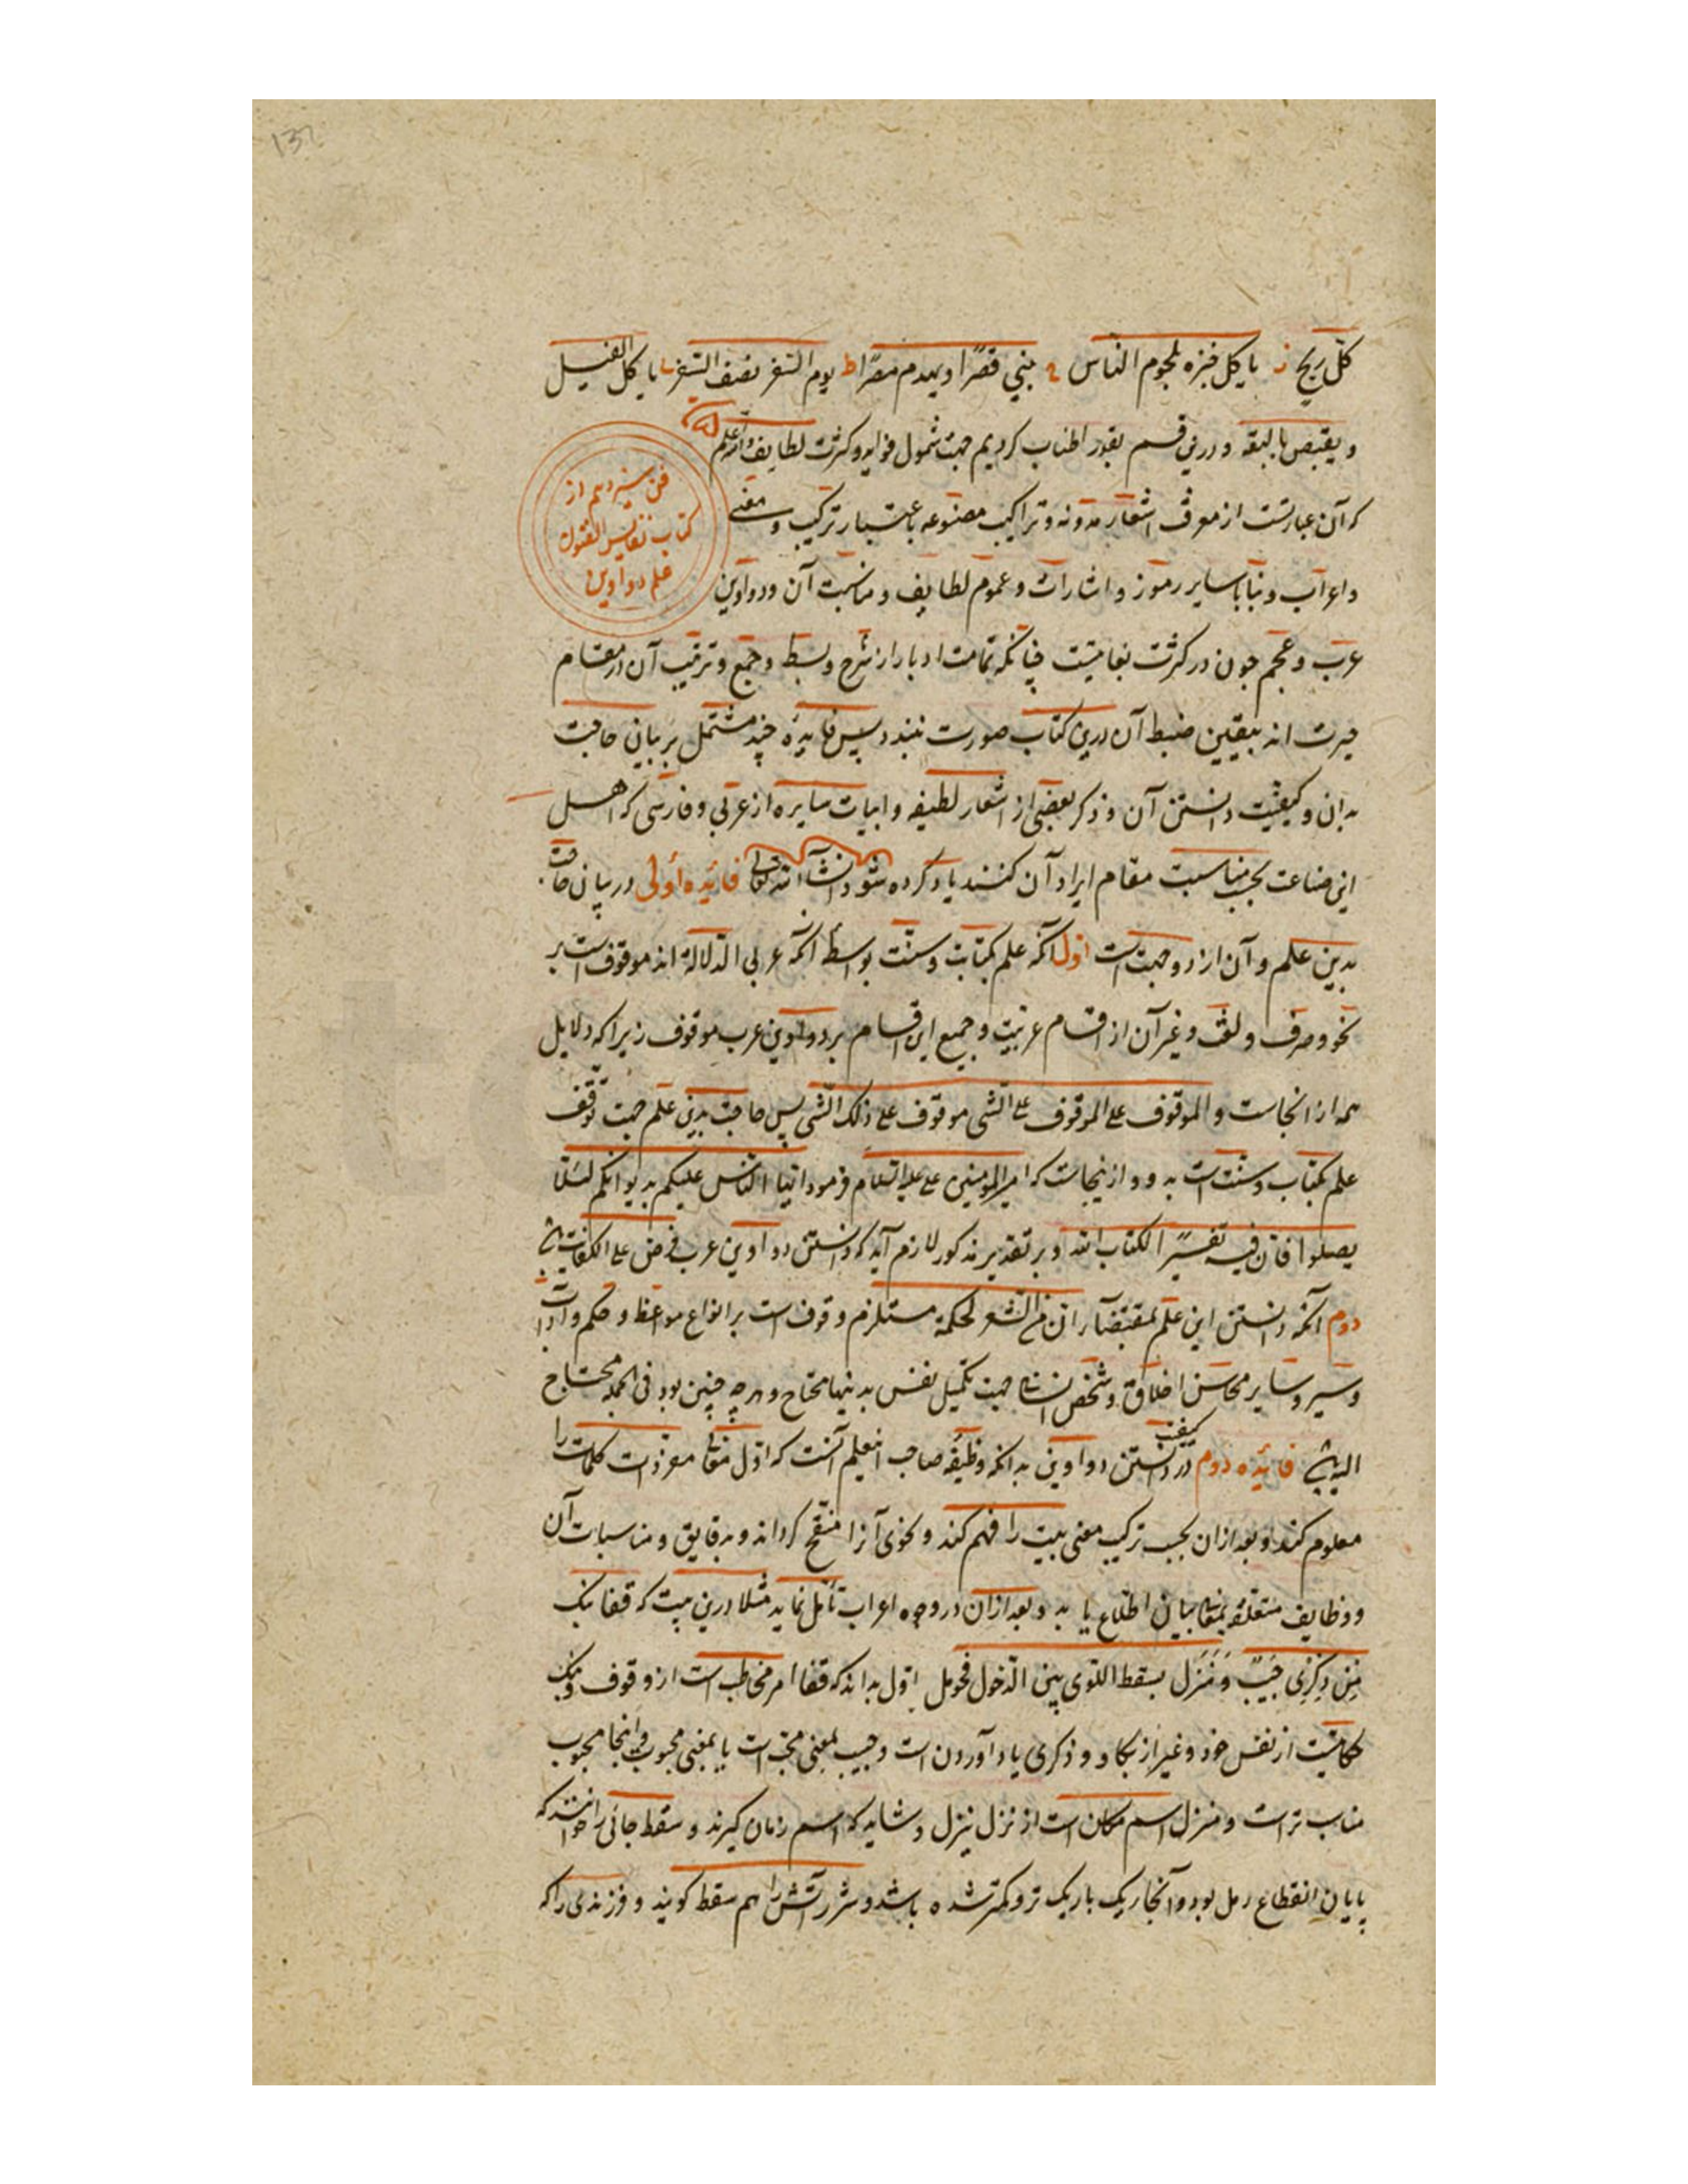 132
کلّ ریح ز یاکل خبزه بلحوم النّاس ح یبنی قصرًا و یهدم مصرًا ط یوم السّفر نصف السّفر ی یاکل الفیل
و یغتص بالبقه و درین قسم بقدر اطناب کردیم جهت شمول فواید و کثرت لطایف واللّه اعلم
فن سیزدهم از
کتاب نفایس الفنون
علم دواوین
که آن عبارتست از معرفت اشعار مدونه و تراکیب مصنوعه باعتبار ترکیب و معنی
و اعراب و بنا با سایر رموز و اشارات و عموم لطایف و مناسبت آن و دواوین
عرب و عجم چون در کثرت بغایتیست چنانکه تمامت ادبا از شرح و بسط و جمع و ترتیب آن در مقام
حیرت اند بیقین ضبط آن درین کتاب صورت نبندد پس فایدهٔ چند مشتمل بر بیان حاجت
بدان و کیفیت دانستن آن و ذکر بعضی از اشعار لطیفه و ابیات سایره از عربی و فارسی که اهل
این صناعت بحسب مناسبت مقام ایراد آن کنند یاد کرده شود انشآء اللّه تعالی فائیده أولی در بیان حاجت
بدین علم و آن از دو جهت است اوّل آنکه علم کتاب و سنّت بواسطهٔ آنکه عربی الدّلالة اند موقوف است بر
نحو و صرف و لغت و غیر آن از اقسام عربیّت و جمیع این اقسام بر دواوین عرب موقوف زیرا که دلایل
همه از انجاست و الموقوف علی الموقوف علی الشّی موقوف علی ذلک الشّی پس حاجت بدین علم جهت توقّف
علم کتاب و سنّت است بدو و ازینجاست که امیر المومنین علی علیه السّلام فرمود ایّها النّاس علیکم بدیوانکم لئلّا
یضلوا فانّ فیه تفسیرًا لکتاب اللّه و بر تقدیر مذکور لازم آید که دانستن دواوین عرب فرض علی الکفایت باشد
دوم آنکه دانستن این علم بمقتضآء انّ من الشّعر لحکمة مستلزم وقوف است بر انواع مواعظ و حکم و آداب
و سیر و سایر محاسن اخلاق و شخص انسانی جهت تکمیل نفس بدینها محتاج و هرچه چنین بود فی الجمله محتاج
الیه باشد فائیده دوم در کیفیت دانستن دواوین بدانکه وظیفه صاحب اینعلم آنست که اوّل معانی مفردات کلمات را
معلوم کند و بعد ازان بحسب ترکیب معنی بیت را فهم کند و فحوی آنرا منقّح گرداند و بدقایق و مناسبات آن
و وظایف متعلقهٔ بمعانی بیان اطّلاع یابد و بعد ازان در وجوه اعراب تأمّل نماید مثلا درین بیت که قفا نبک
مِن ذِکرٰی حَبیبٍ وَمَنزل بسقط اللّوی بین الدّخول فحومل اوّل بداند که قفا امر مخاطب است از وقوف و نبک
حکایتیست از نفس خود و غیر از بکا و ذکری یاد آوردن است و حبیب بمعنی محبّ است یا بمعنی محبوب و اینجا محبوب
مناسب تر است و منزل اسم مکان است از نزل ینزل و شاید که اسم زمان گیرند و سقط جائی را خوانند که
پایان انقطاع رمل بود و آنجا ریک باریک تر و کمتر شده باشد و شرر آتش را هم سقط کویند و فرزندی را که